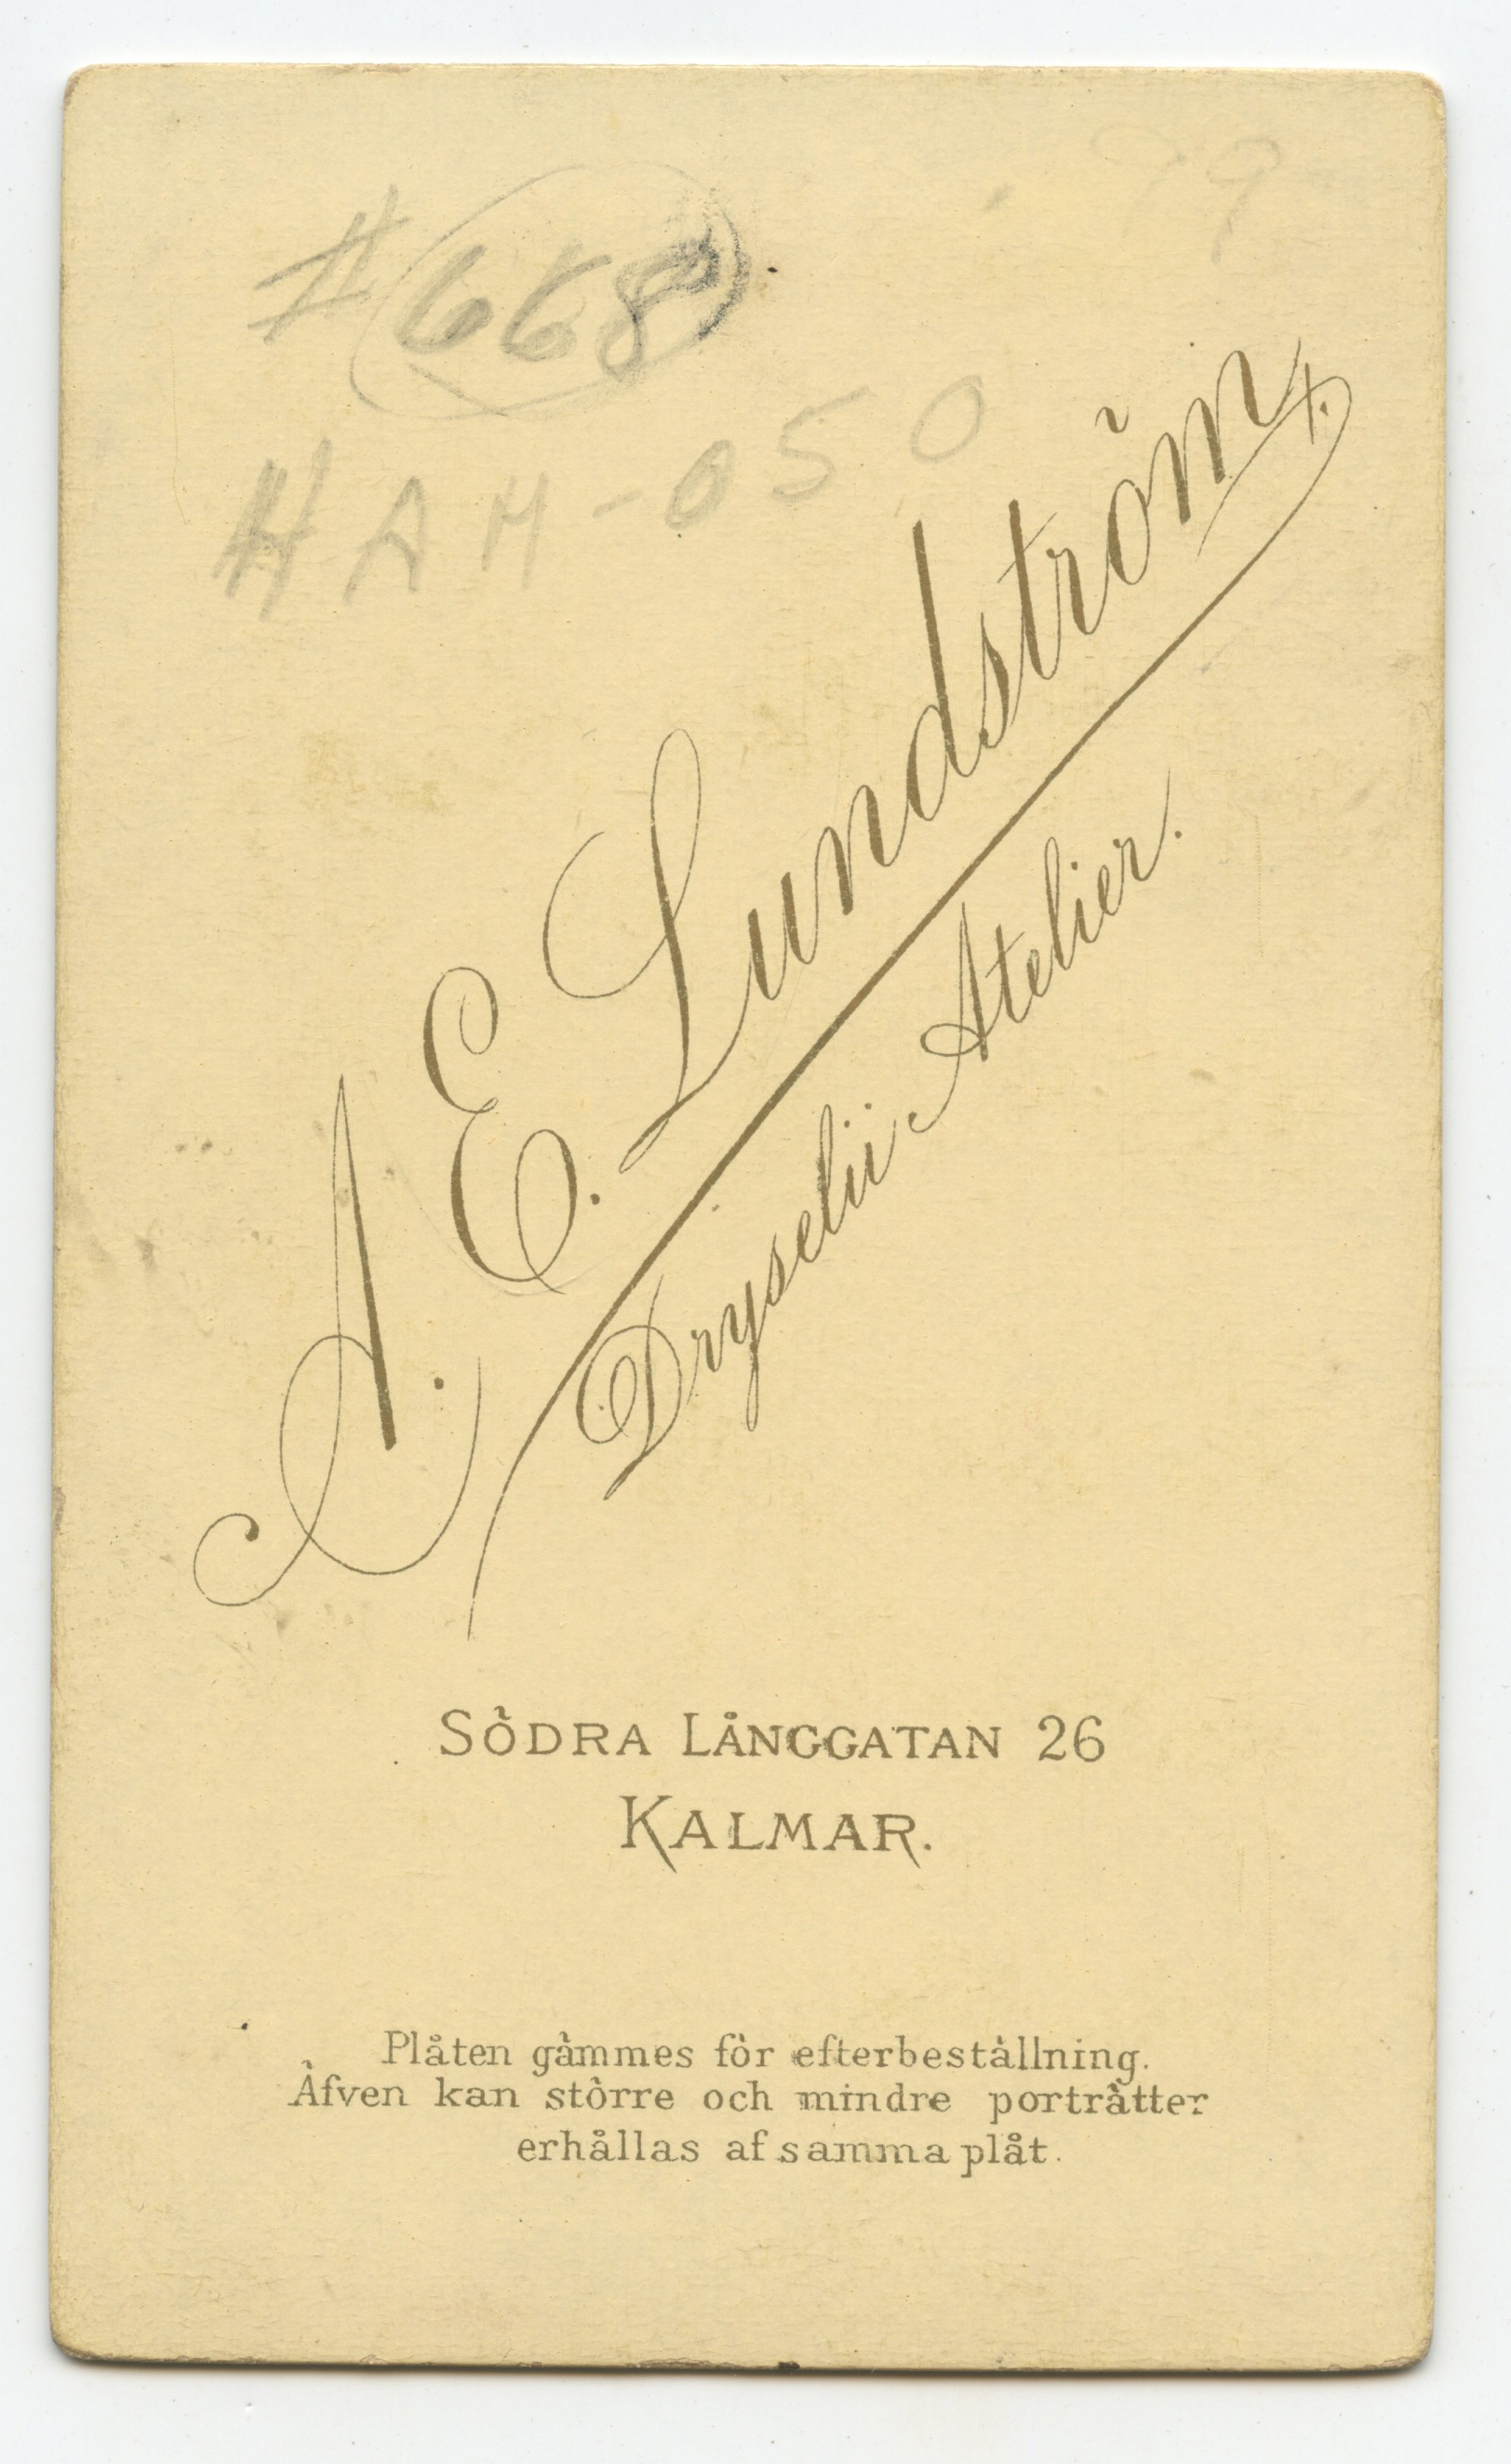 #668
HAM-050
A. E. Lundström
Dryselii Atelier.
SÖDRA LÅNGGATAN 26
KALMAR.
Plåten gämmes för efterbeställning.
Äfven kan större och mindre porträtter
erhållas af samma plåt.